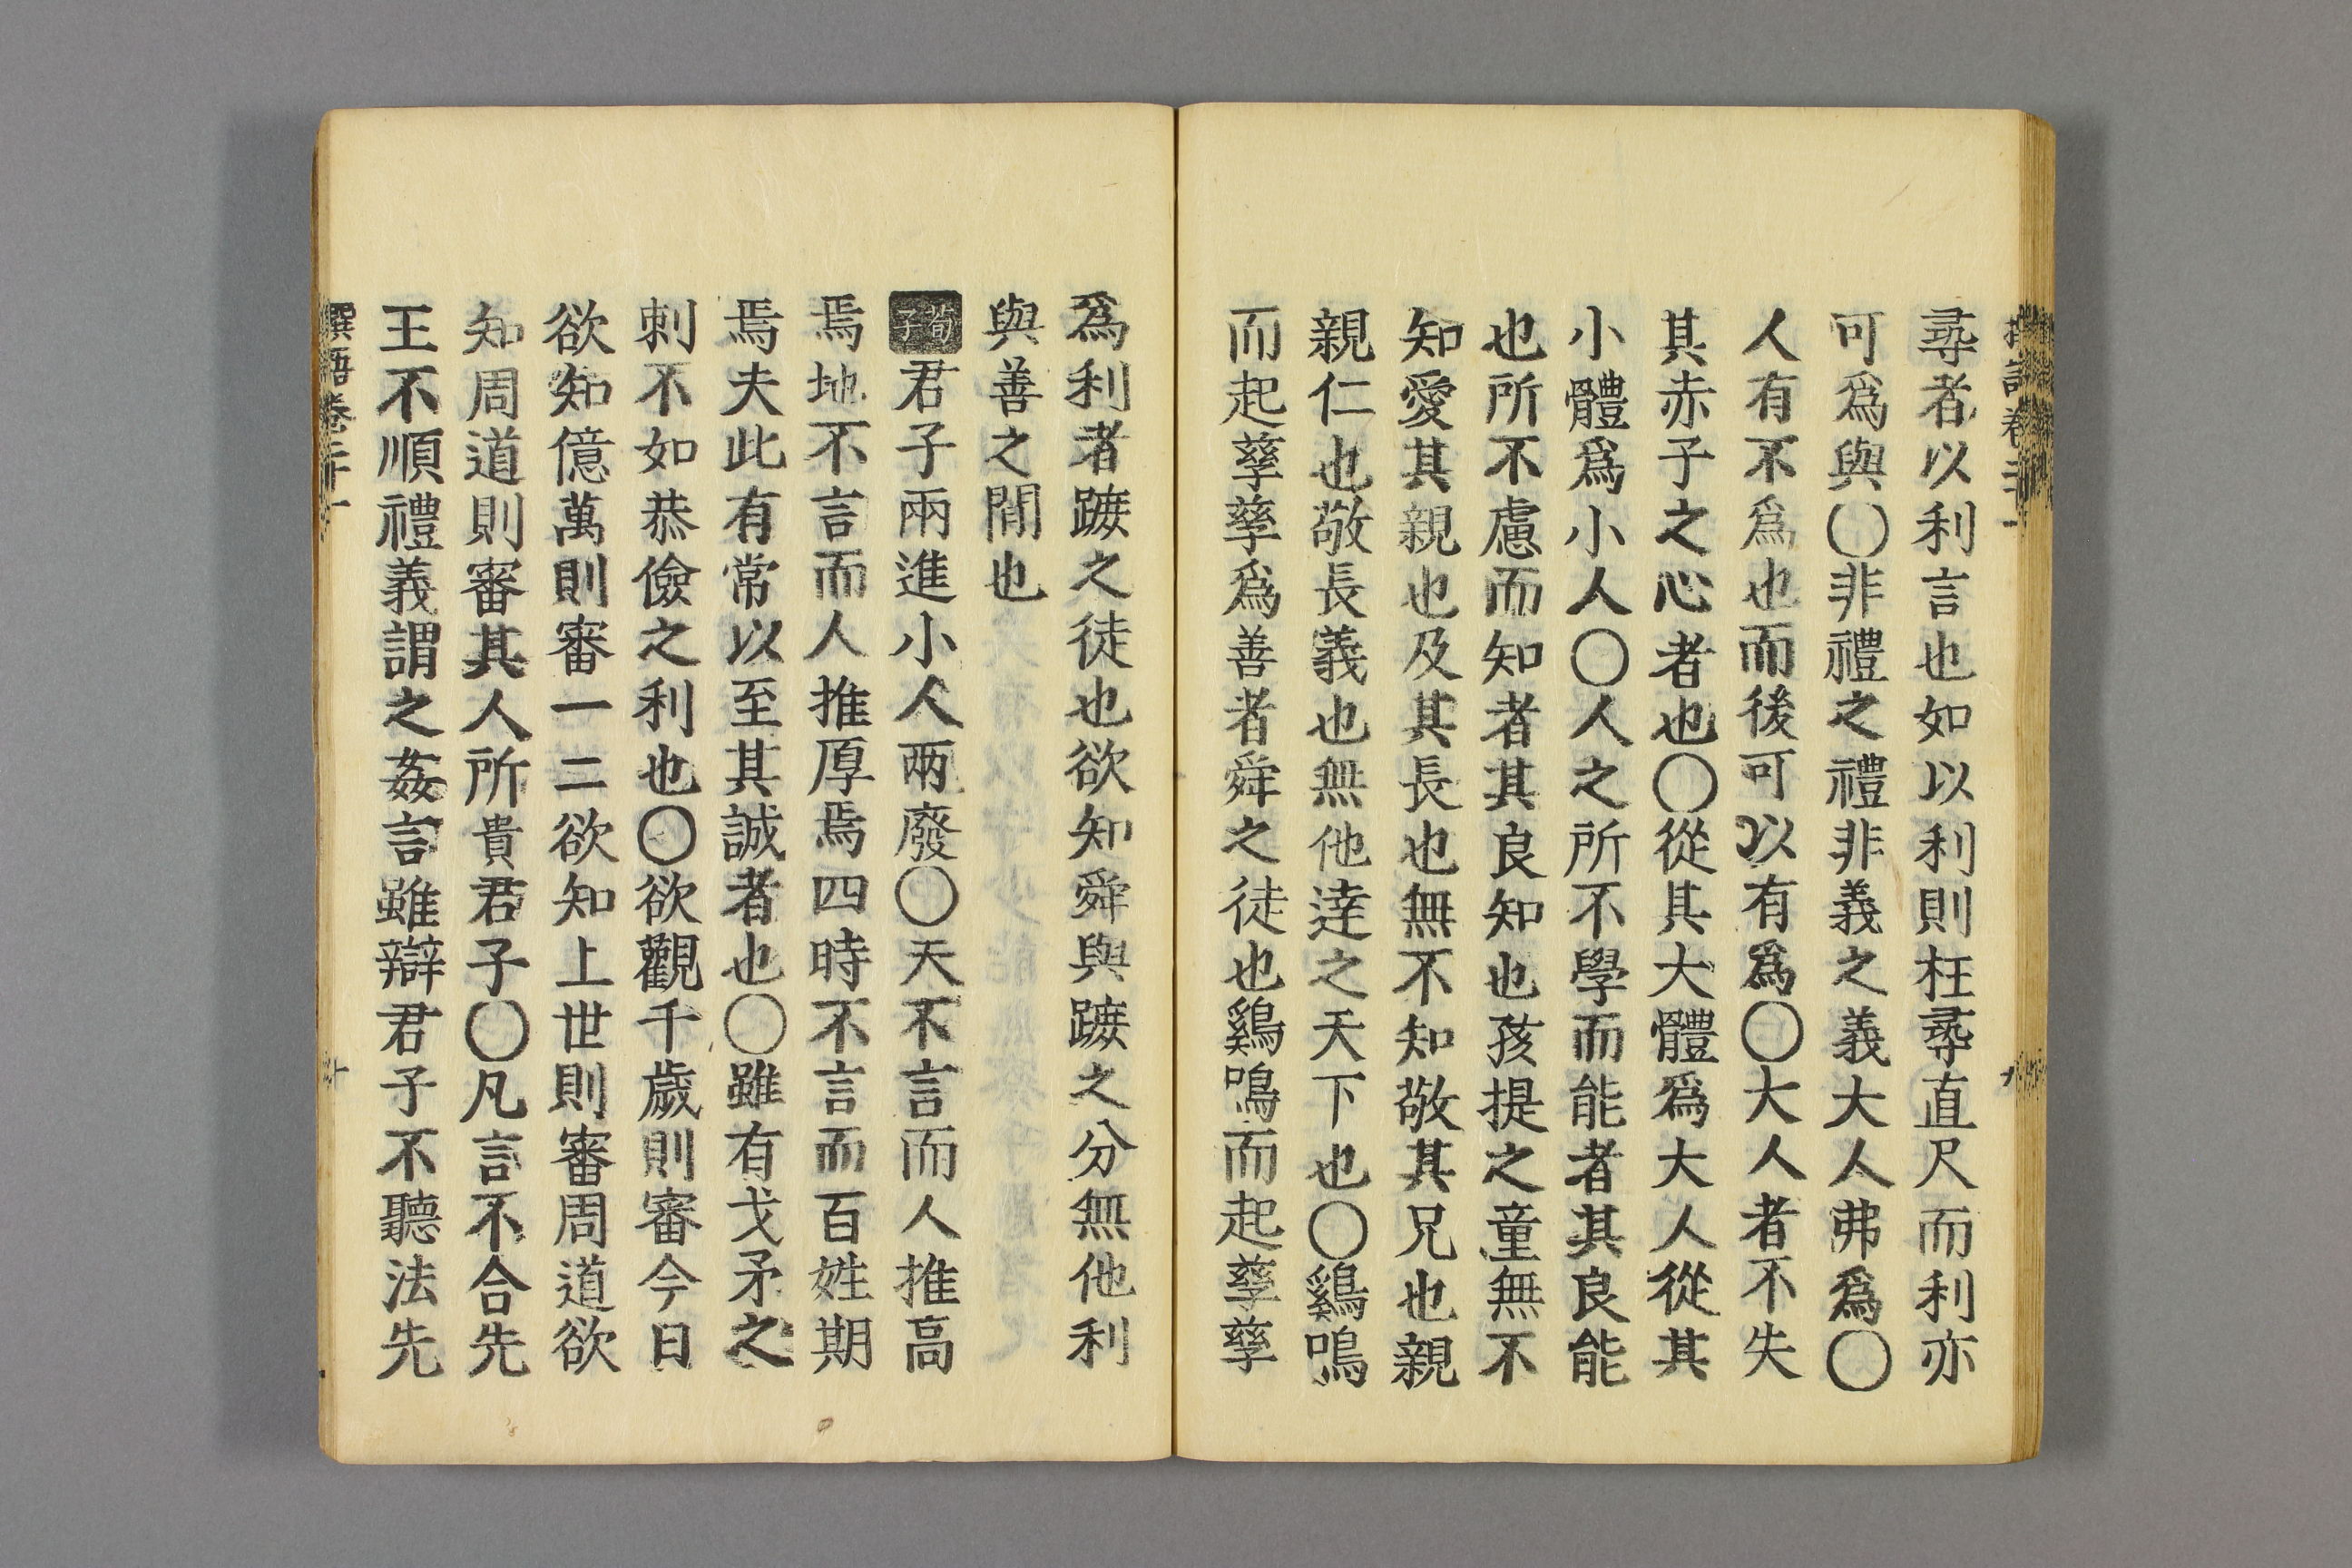 尋者以利言也如以利則枉尋直尺而利亦
可爲與〇非禮之禮非義之義大人弗爲〇
人有不爲也而後可以有爲〇大人者不失
其赤子之心者也〇從其大體爲大人從其
小體爲小人〇人之所不學而能者其良能
也所不慮而知者其良知也孩提之童無不
知愛其親也及其長也無不知敬其兄也親
親仁也敬長義也無他達之天下也〇鷄鳴
而起孳孳爲善者舜之徒也鷄鳴而起孳孳
爲利者蹠之徒也欲知舜與蹠之分無他利
與善之間也
荀子君子兩進小人兩廢〇天不言而人推高
焉地不言而人推厚焉四時不言而百姓期
焉夫此有常以至其誠者也〇雖有戈矛之
刺不如恭儉之利也〇欲觀千歲則審今日
欲知億萬則審一二欲知上世則審周道欲
知周道則審其人所貴君子〇凡言不合先
王不順禮義謂之姦言雖辯君子不聽法先
撰語卷二十一
十